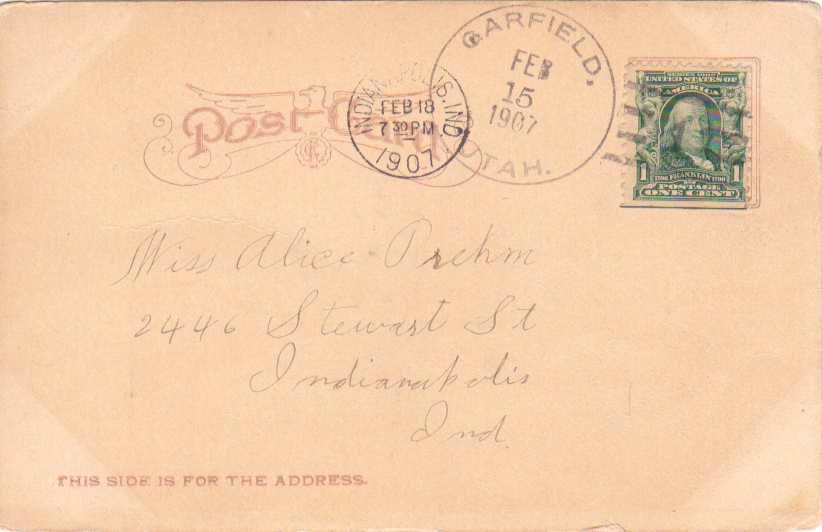 Post Card
INDIANAPOLIS, IND.
FEB 18
7 30 PM
1907
GARFIELD,
FEB
15
1907
UTAH.
SERIES 1902
UNITED STATES OF
AMERICA
1 FRANKLIN 1
POSTAGE
ONE CENT
Miss Alice Prehm
2446 Stewart St
Indianapolis
Ind.
THIS SIDE IS FOR THE ADDRESS.